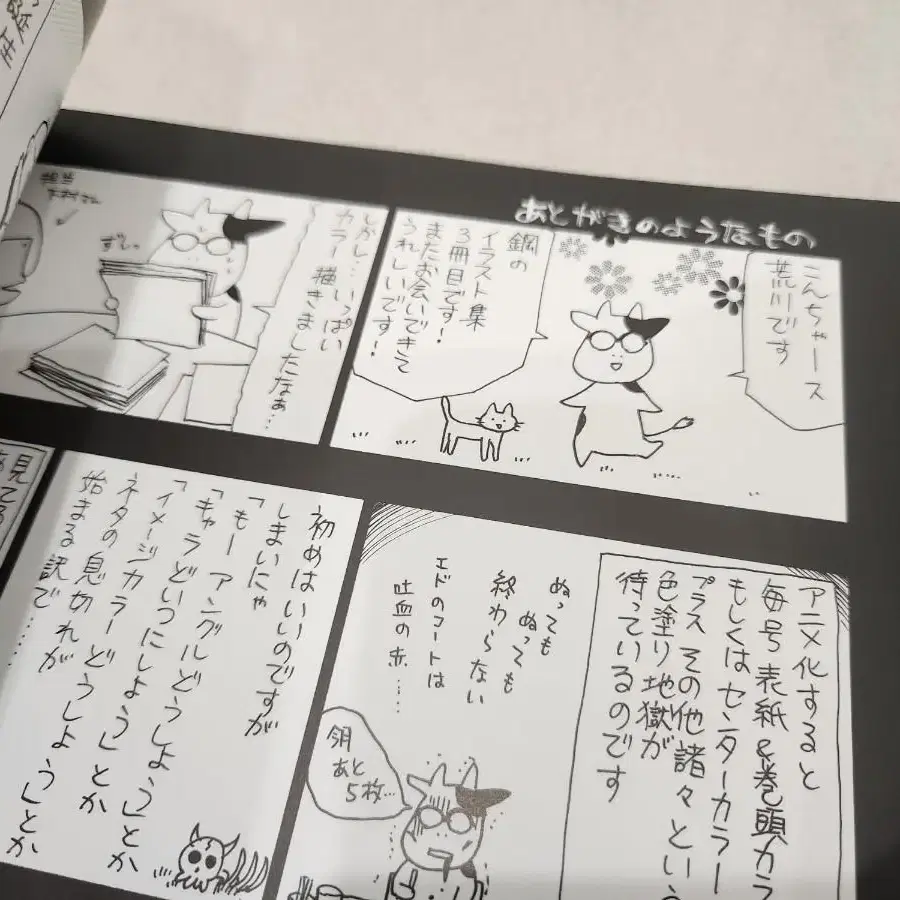 あとがきのようなもの
こんちゃース
荒川です
鋼の
イラスト集
3冊目です!
またお会いできて
うれしいです!
しかし…いっぱい
カラー描きましたなぁ…
担当
ずしっ
アニメ化すると
毎号表紙&巻頭カラ
もしくはセンターカラー
プラスその他諸々という
色塗り地獄が
待っているのです
ぬっても
ぬっても
終わらない
エドのコートは
吐血の赤……
今月
あと
5枚…
初めはいいのですが
しまいにゃ
「もーアングルどうしよう」とか
「キャラどいつにしよう」とか
「イメージカラーどうしよう」とか
ネタの息切れが
始まる訳で……
見てる